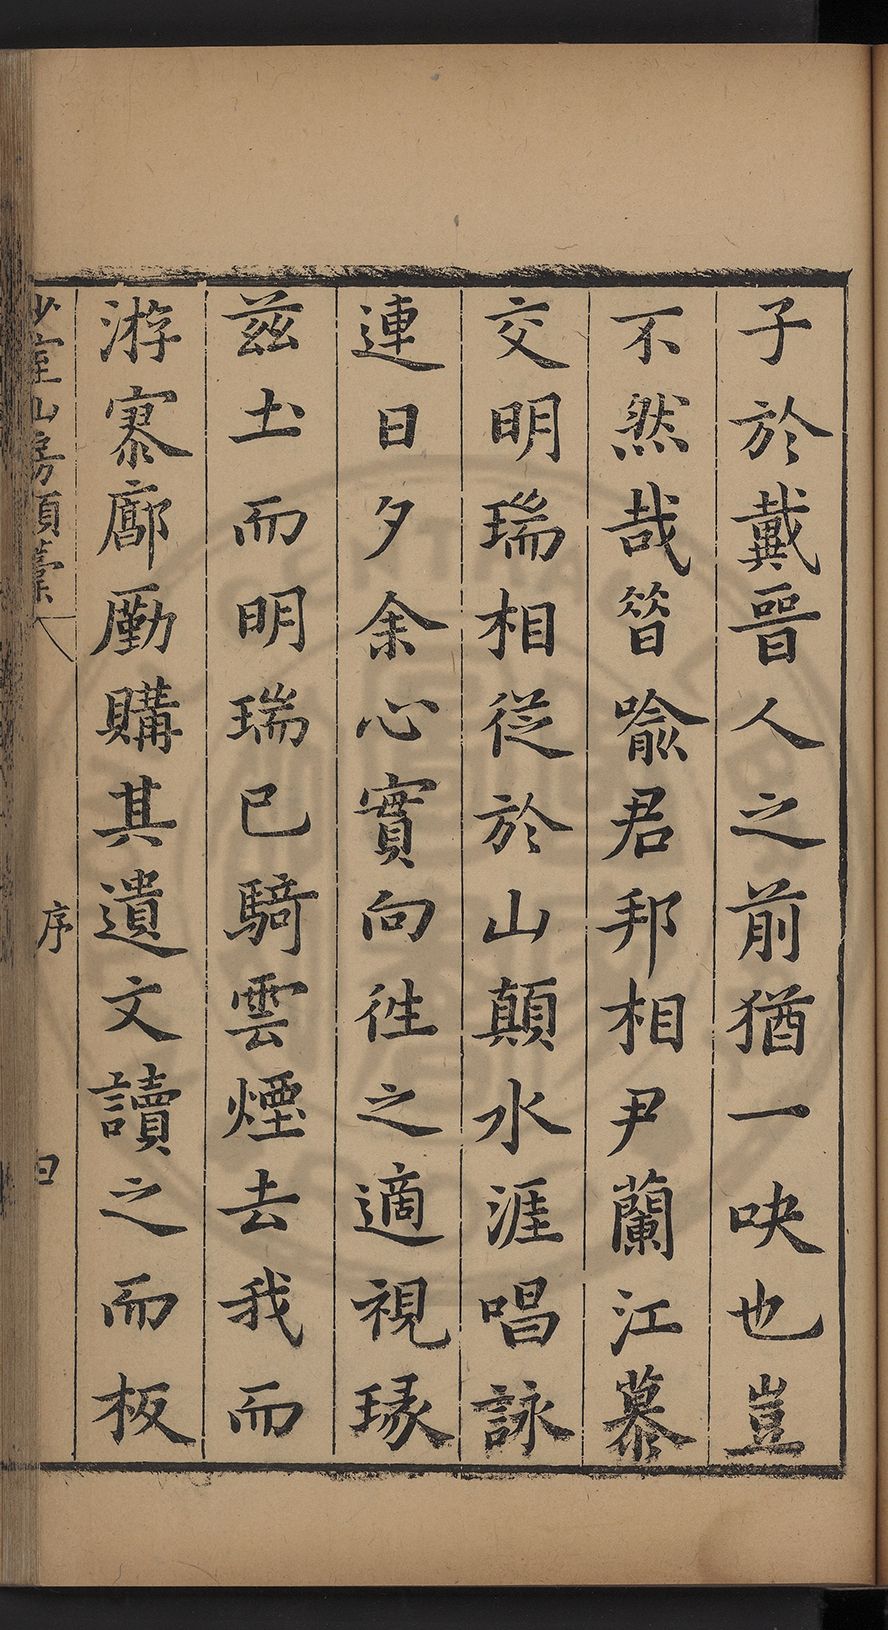 子於戴晉人之前猶一吷也豈
不然哉昝喩君邦相尹蘭江慕
交明瑞相從於山顛水涯唱詠
連日夕余心實向徃之適視瑑
兹土而明瑞已騎雲煙去我而
游寥廓勵購其遺文讀之而板
少室山房類藁
序
四